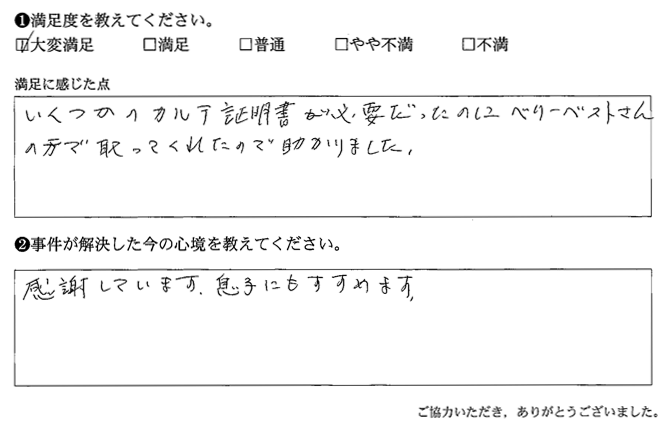 ❶満足度を教えてください。
☑大変満足 □満足 □普通 □やや不満 □不満
満足に感じた点
いくつかのカルテ証明書が必要だったのにベリーベストさん
の方で取ってくれたので助かりました。
❷事件が解決した今の心境を教えてください。
感謝しています。息子にもすすめます。
ご協力いただき、ありがとうございました。